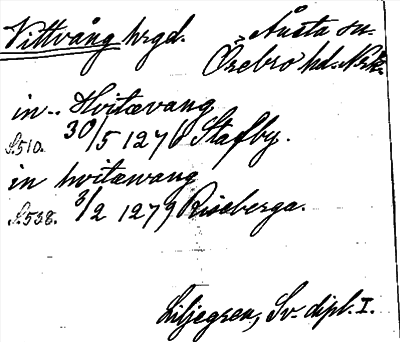 Vittvång hrgd. Ånsta sn.
Örebro hd. Nrk.
in.. Hvitævang
S. 510. 30/5 1276 Stafby.
in hvitæwang
S. 538. 3/2 1279 Riseberga.
Liljegren, Sv. dipl. I.